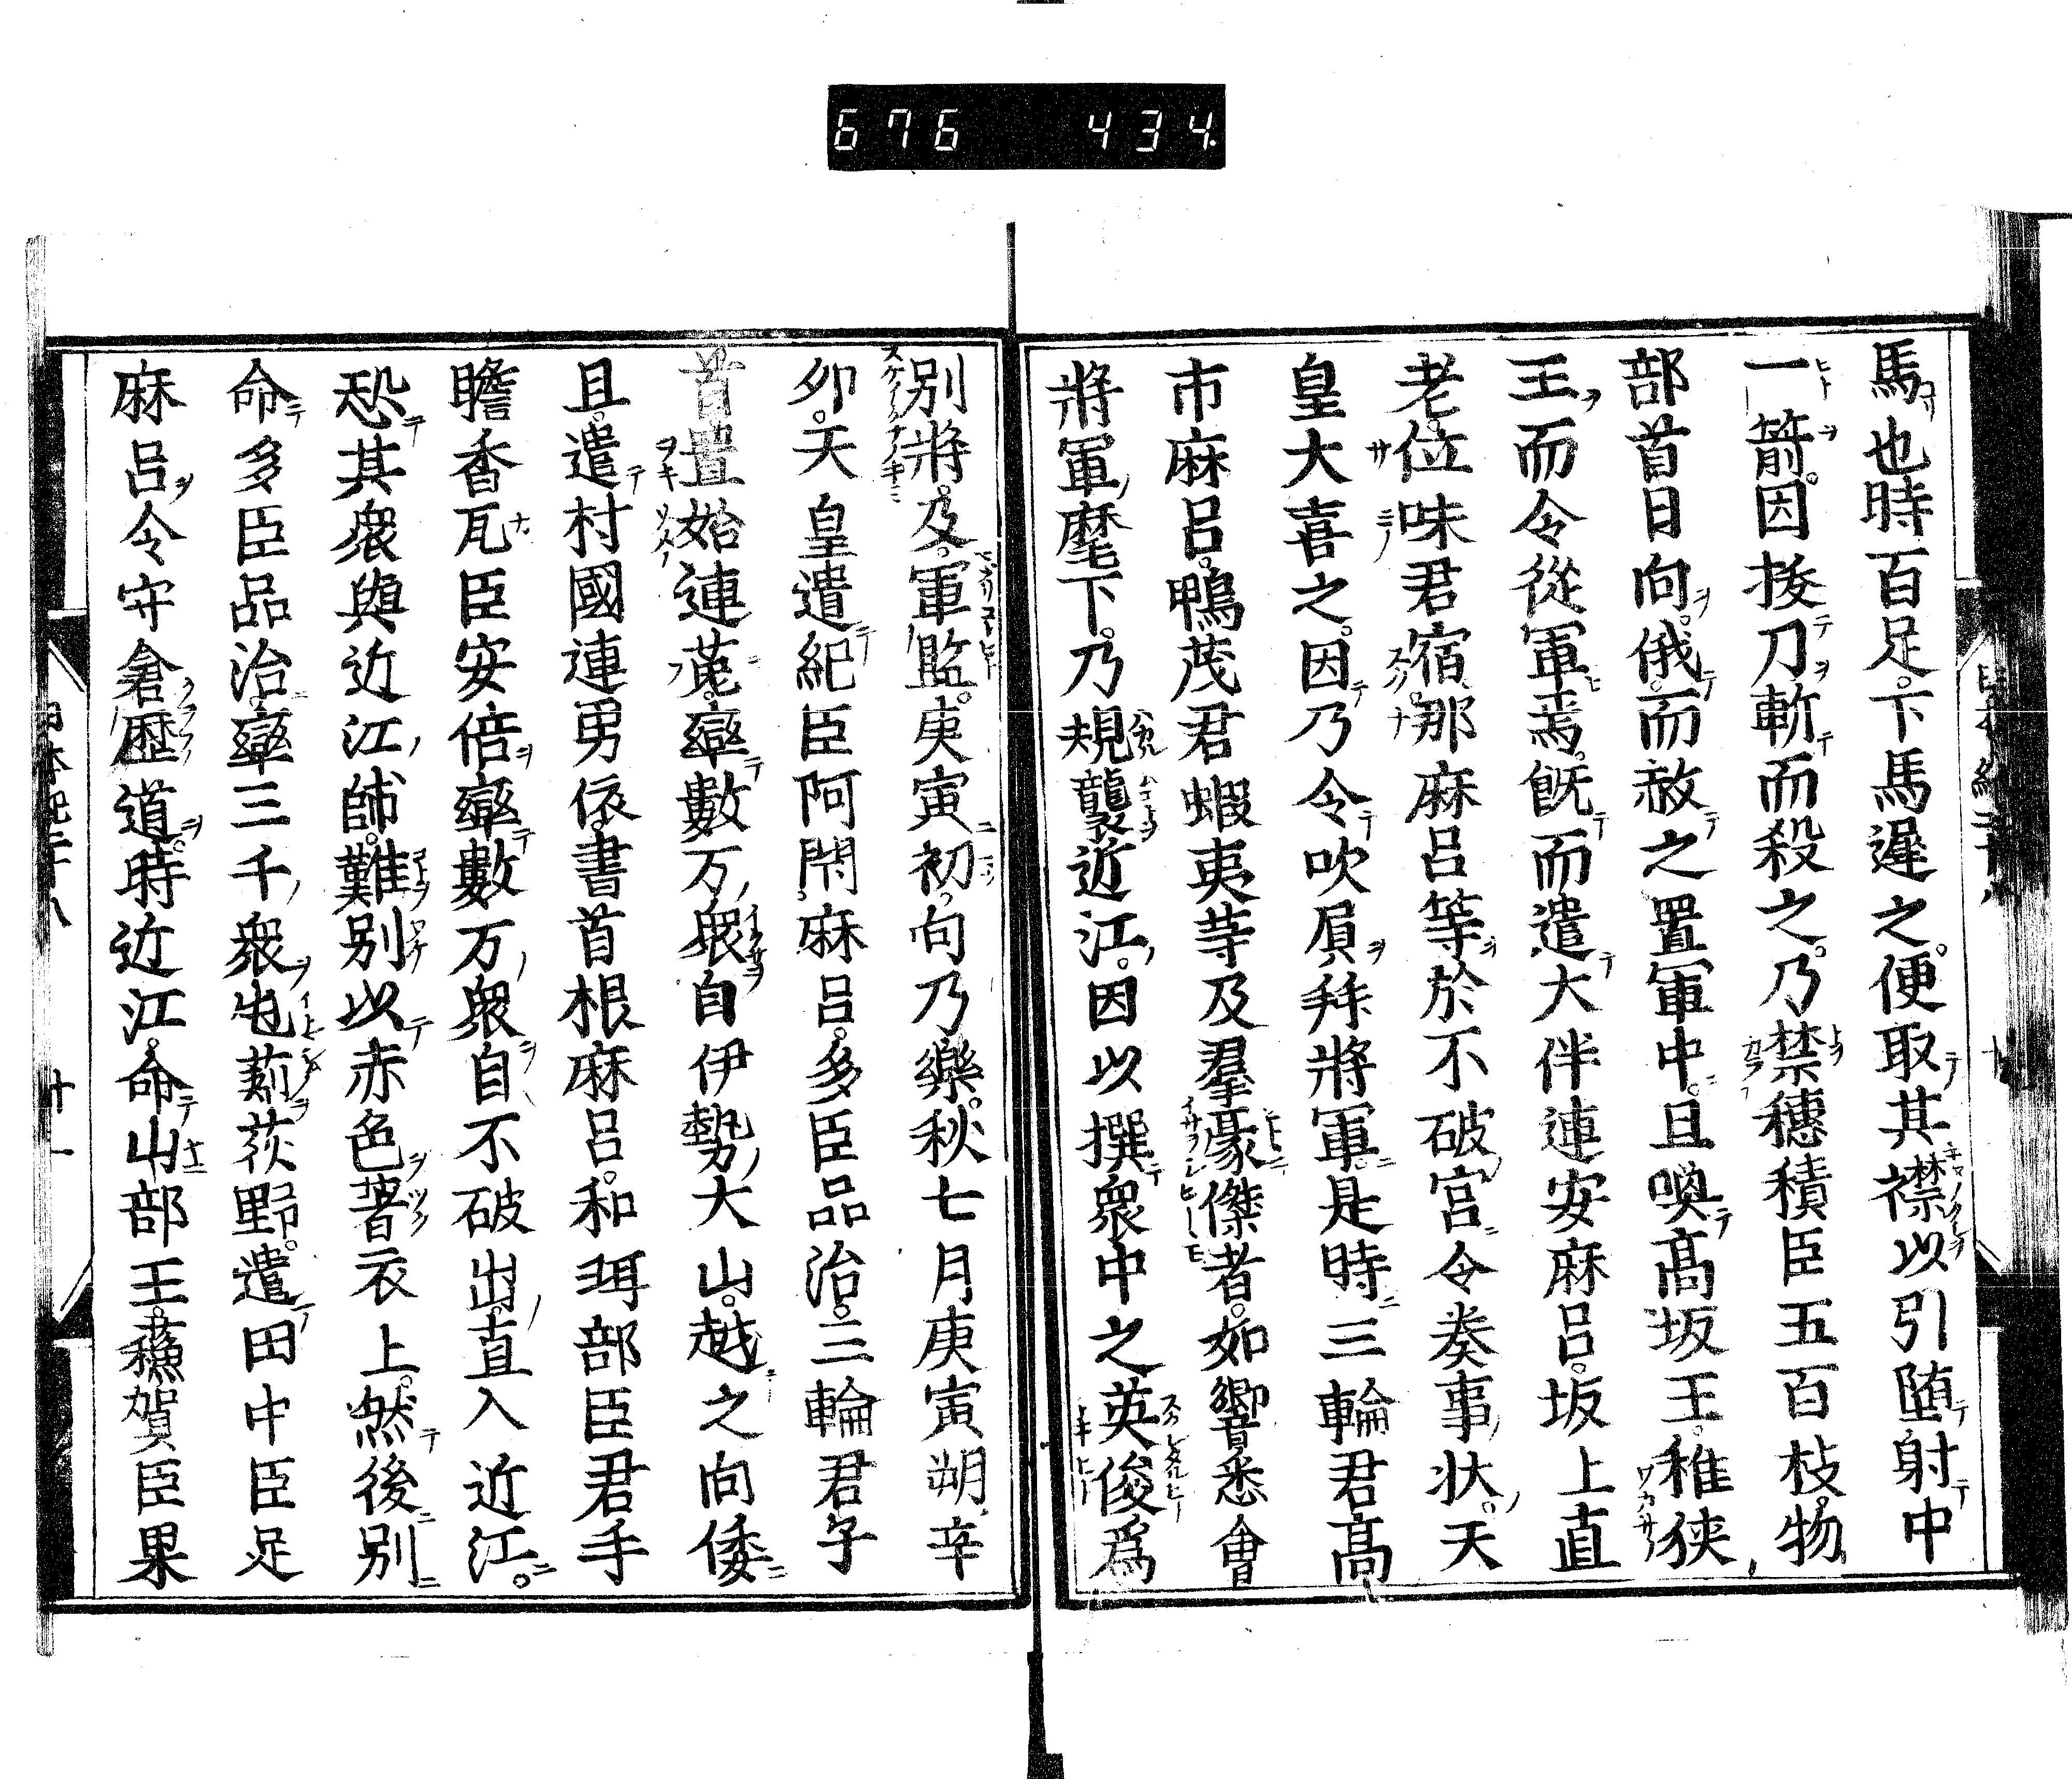 676 434.
馬也時百足下馬遲之便取其襟以引堕射中
一箭因拔刀斬而殺之乃禁穗積臣五百枝物
部首日向俄而赦之置軍中且喚髙坂王稚狹
王而令從軍焉旣而遣大伴連安麻呂坂上直
老位味君宿那麻呂等於不破宮令奏事状天
皇大喜之因乃令吹屓拜將軍是時三輪君髙
市麻呂鴨茂君蝦夷等及羣豪傑者如響悉會
將軍麾下乃規襲近江因以撰衆中之英俊爲
別將及軍監庚寅初向乃樂秋七月庚寅朔辛
夘天皇遣紀臣阿閇麻呂多臣品治三輪君子
首置始連菟率數万衆自伊勢大山越之向倭
且遣村國連男依書首根麻呂和珥部臣君手
瞻香瓦臣安倍率數万衆自不破出直入近江
恐其衆與近江師難別以赤色著衣上然後別
命多臣品治率三千衆屯莿萩野遣田中臣足
麻呂令守倉歷道時近江命山部王蘓賀臣果
日本紀二十八 十一